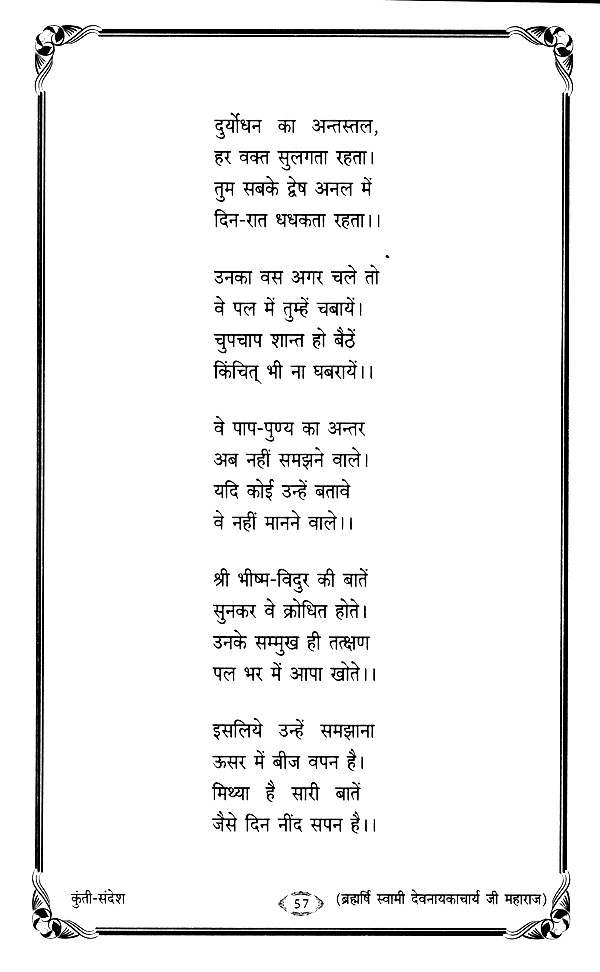 दुर्योधन का अन्तस्तल,
हर वक्त सुलगता रहता।
तुम सबके द्वेष अनल में
दिन-रात धधकता रहता।।
उनका वस अगर चले तो
वे पल में तुम्हें चबायें।
चुपचाप शान्त हो बैठें
किंचित् भी ना घबरायें।।
वे पाप-पुण्य का अन्तर
अब नहीं समझने वाले।
यदि कोई उन्हें बतावे
वे नहीं मानने वाले।।
श्री भीष्म-विदुर की बातें
सुनकर वे क्रोधित होते।
उनके सम्मुख ही तत्क्षण
पल भर में आपा खोते।।
इसलिये उन्हें समझाना
ऊसर में बीज वपन है।
मिथ्या है सारी बातें
जैसे दिन नींद सपन है।।
कुंती-संदेश 57 (ब्रह्मर्षि स्वामी देवनायकाचार्य जी महाराज)